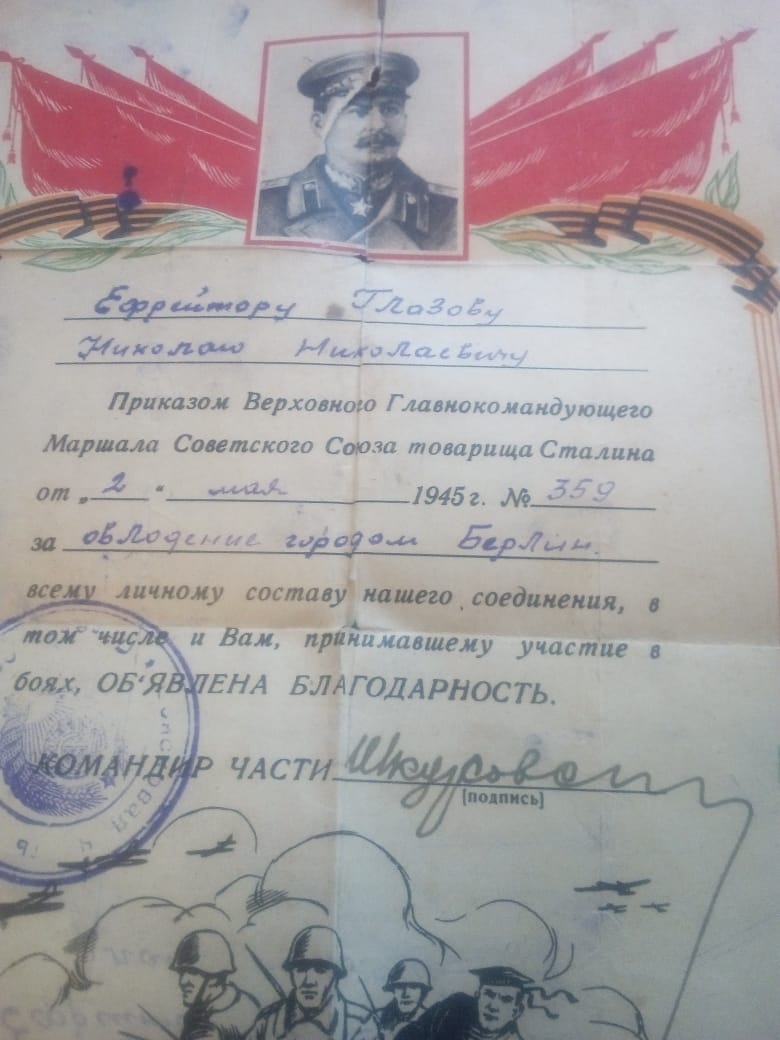 Ефрейтору Глазову
Николаю Николаевичу
Приказом Верховного Главнокомандующего
Маршала Советского Союза товарища Сталина
от „2“ мая 1945 г. № 359
за овладение городом Берлин.
всему личному составу нашего соединения, в
том числе и Вам, принимавшему участие в
боях, ОБ'ЯВЛЕНА БЛАГОДАРНОСТЬ.
КОМАНДИР ЧАСТИ
[подпись]